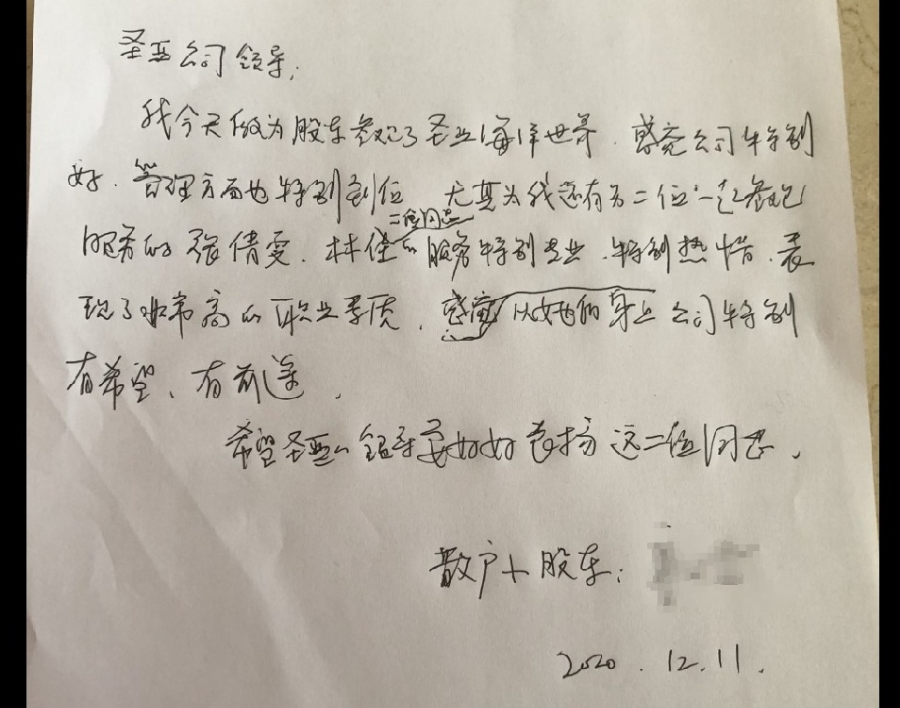 圣亚公司领导:
我今天做为股东参观了圣亚海洋世界.感觉公司特别
好.管理方面也特别到位 尤其为我还有另二位一起参观
二位同志
服务的张倩雯.林佳的服务特别专业.特别热情.表
现了非常高的职业素质.感觉从她的身上公司特别
有希望、有前途.
希望圣亚的领导要好好表扬这二位同志.
散户小股东:
2020.12.11.